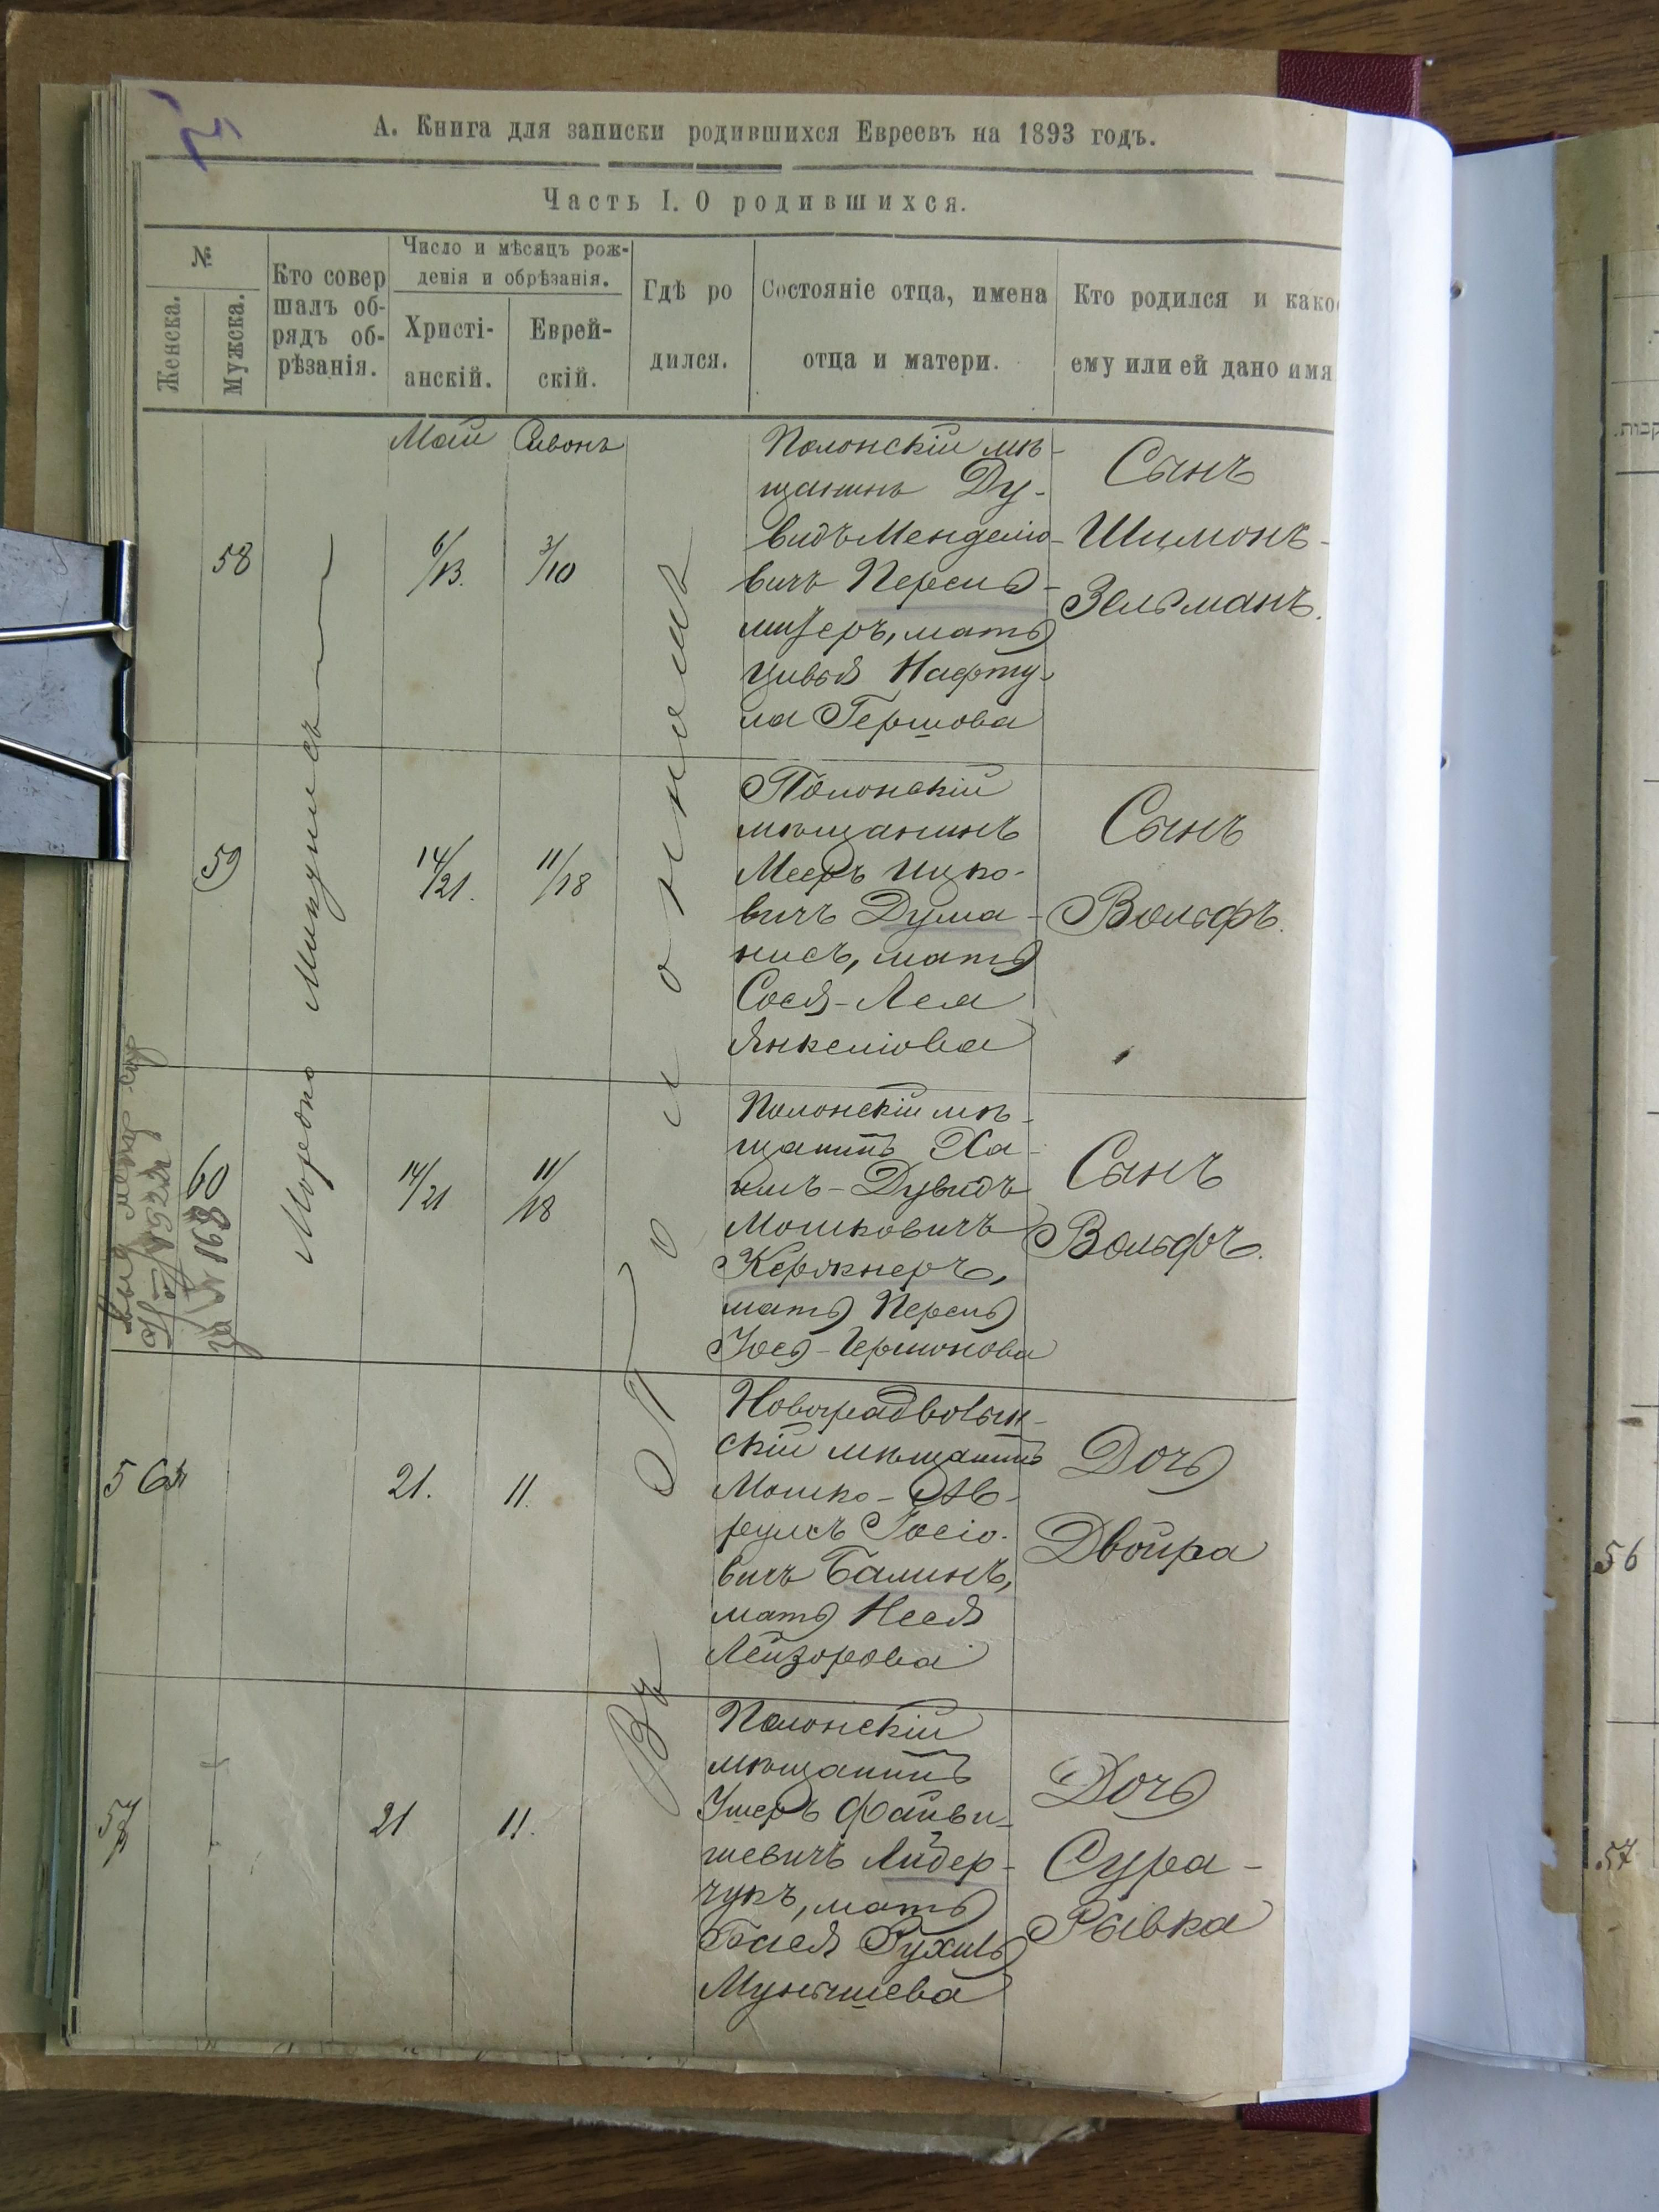 А. Книга для записки родившихся Евреевъ на 1893 годъ.
Часть I. О родившихся.
№
Женска.
Мужска.
Кто совер
шалъ об-
рядъ об-
рѣзанія.
Число и мѣсяцъ рож-
денія и обрѣзанія.
Христі-
анскій.
Еврей-
скій.
Гдѣ ро
дился.
Состояніе отца, имена
отца и матери.
Кто родился и како
ему или ей дано имя
Май
Сивонъ
Мордко
Въ
Полонномъ
58
6/13.
3/10
Полонскій мѣ-
щанинъ Ду-
видъ Менделіо-
вичъ Перель-
мутеръ, мать
Цивья Нафту-
ла Гершова
Сынъ
Шимонъ-
Зельманъ.
59
14/21.
11/18
Полонскій
мѣщанинъ
Мееръ Ицко-
вичъ Дума-
нисъ, мать
Сося-Лея
Янкеліова
Сынъ
Вольфъ.
60
№ 168
14/21
11/18
Полонскій мѣ-
щанинъ Ха-
имъ-Дувидъ
Мошковичъ
Мать Перель
Сынъ
Вольфъ.
56
21.
11.
Новоградволын-
скій мѣщанинъ
Мошко-Ав-
румъ Іосіо-
вичъ Балинъ,
мать Нися
Лейзорова
Дочь
Двойра
57
21
11.
Полонскій
мѣщанинъ
Ушеръ Файви-
шевичъ Лидер-
чукъ, мать
Бася Рухль
Мунишева
Дочь
Сура-
Рывка
56
57